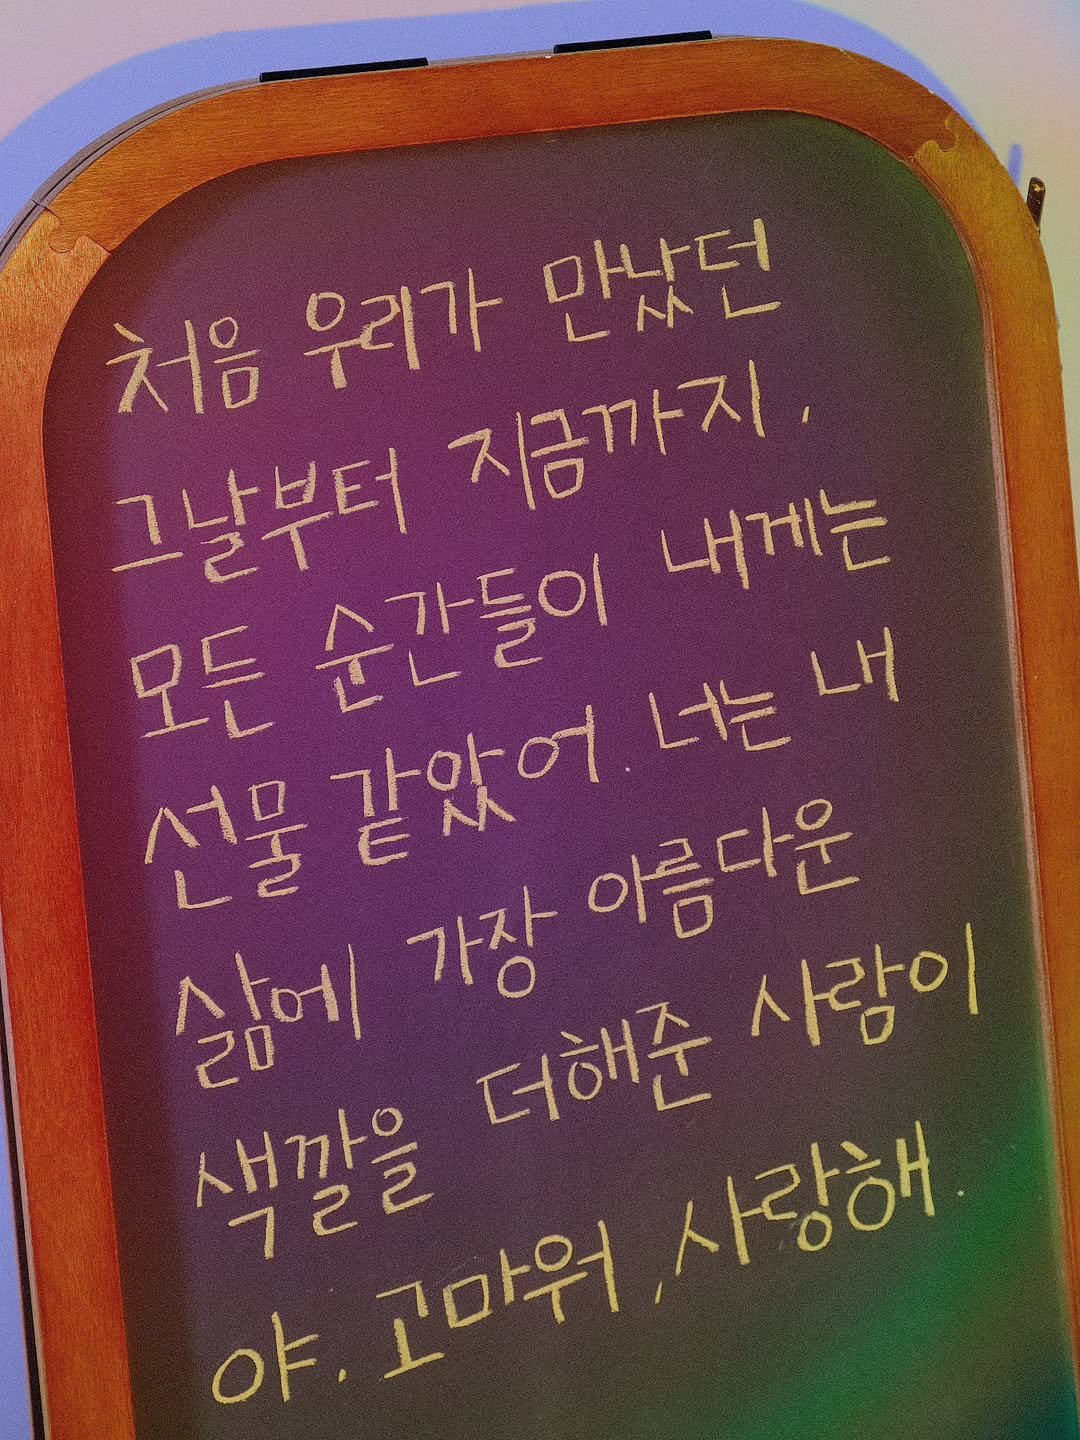 처음 우리가 만났던
그날부터 지금까지,
모든 순간들이 내게는
선물 같았어. 너는 내
삶에 가장 아름다운
색깔을 더해준 사람이
야. 고마워, 사랑해.